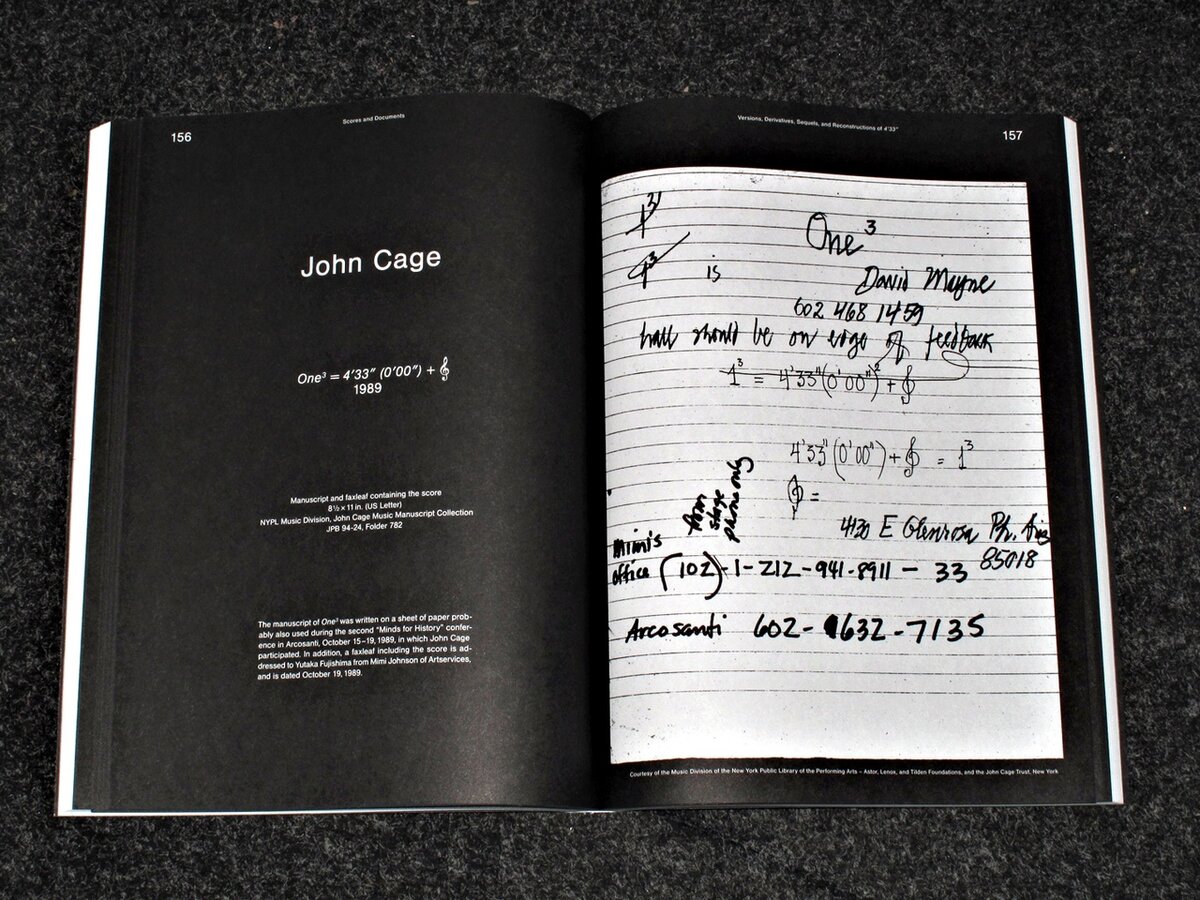 156
Scores and Documents
John Cage
One³ = 4′33″ (0′00″) + 𝄞
1989
Manuscript and faxleaf containing the score
8½ × 11 in. (US Letter)
NYPL Music Division, John Cage Music Manuscript Collection
JPB 94-24, Folder 782
The manuscript of One³ was written on a sheet of paper prob-
ably also used during the second “Minds for History” confer-
ence in Arcosanti, October 15–19, 1989, in which John Cage
participated. In addition, a faxleaf including the score is ad-
dressed to Yutaka Fujishima from Mimi Johnson of Artservices,
and is dated October 19, 1989.
Versions, Derivatives, Sequels, and Reconstructions of 4′33″
157
1³
One³
1³ is
David Mayne
602 468 1459
hall should be on edge of feedback
1³ = 4′33″(0′00″)² + 𝄞
4′33″(0′00″) + 𝄞 = 1³
𝄞 =
from
stage
phone only
4130 E Glenrosa Ph. Ariz
85018
Mimi's
office (102)-1-212-941-8911 - 33
Arcosanti 602-632-7135
Courtesy of the Music Division of the New York Public Library of the Performing Arts – Astor, Lenox, and Tilden Foundations, and the John Cage Trust, New York